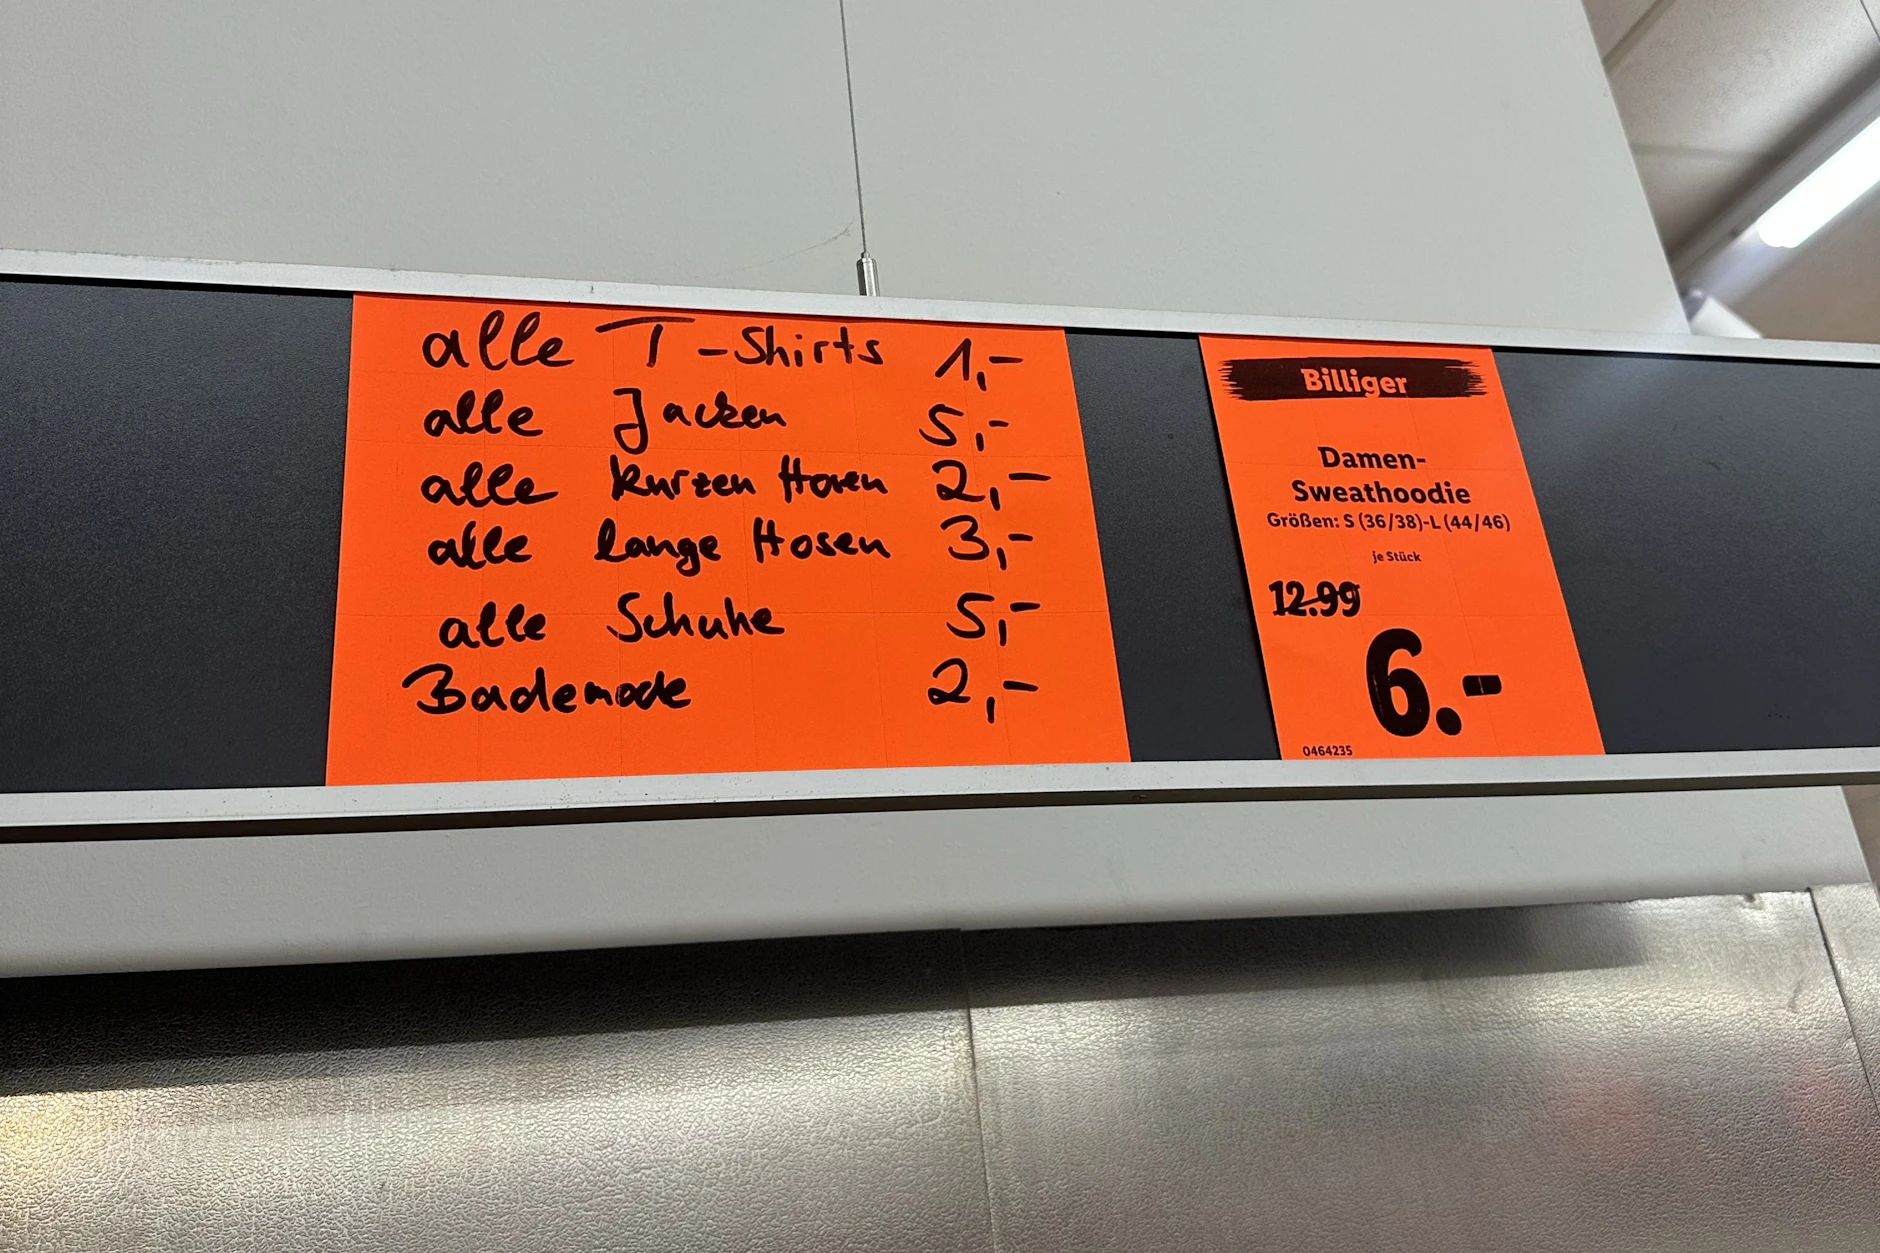 alle T-Shirts 1,-
alle Jacken 5,-
alle kurzen Hosen 2,-
alle lange Hosen 3,-
alle Schuhe 5,-
Bademode 2,-
Billiger
Damen-
Sweathoodie
Größen: S (36/38)-L (44/46)
je Stück
12.99
6.-
0464235